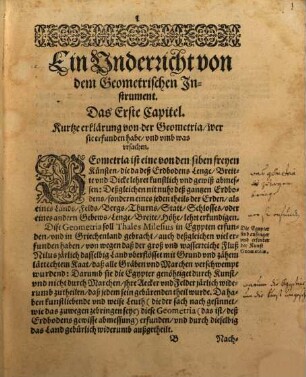 1
Ein Vnderricht von
dem Geometrischen In-
strument.
Das Erste Capitel.
Kurtze erklärung von der Geometria/wer
sie erfunden habe/vnd vmb was
vrsachen.
GEometria ist eine von den siben freyen
Künsten/die da deß Erdbodens Lenge/Breite
vnd Dicke lehret künstlich vnd gewiß abmes-
sen: Deßgleichen mit nicht deß gantzen Erdbo-
dens/sondern eines jeden theils der Erden/als
eines Lands/Felds/Bergs/Thurns/Statt/Schlosses/oder
eines andern Gebews/Lenge/Breite/Höhe/lehrt erkundigen.
Dise Geometria soll Thales Milesius in Egypten erfun-
den/vnd in Griechenland gebracht/auch deßgleichen viel er-
funden haben/von wegen daß der groß vnd wasserreiche Fluß
Nilus järlich dasselbig Land vberflüsset mit Grund vnd gähem
lättichtem Raat/daß alle Gräben vnd Marchen verschwempt
wurdend: Darumb sie die Egypter genöhtiget durch Kunst/
vnd nicht durch Marchen/ihre Aecker vnd Felder järlich wide-
rumb zutheilen/daß jedem sein gebürenden theil wurde. Da ha-
ben kunstliebende vnd weise Leuth (die der sach nach gesinnet/
wie das zuwegen zebringen seye) diese Geometria (das ist/deß
Erdbodens gewisse abmessung) erfunden/vnd durch dieselbig
das Land gebürlich widerumb außgetheilt.
Die Egypter
Geometria.
B
Nach-